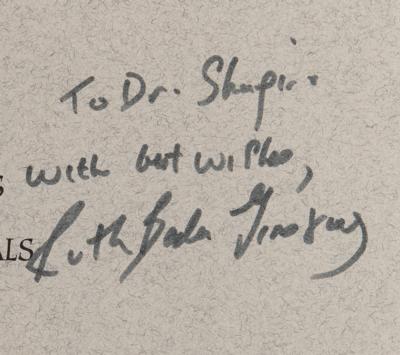 To Dr. Shapiro
with best wishes,
S
Ruth Bader Ginsburg
ALS